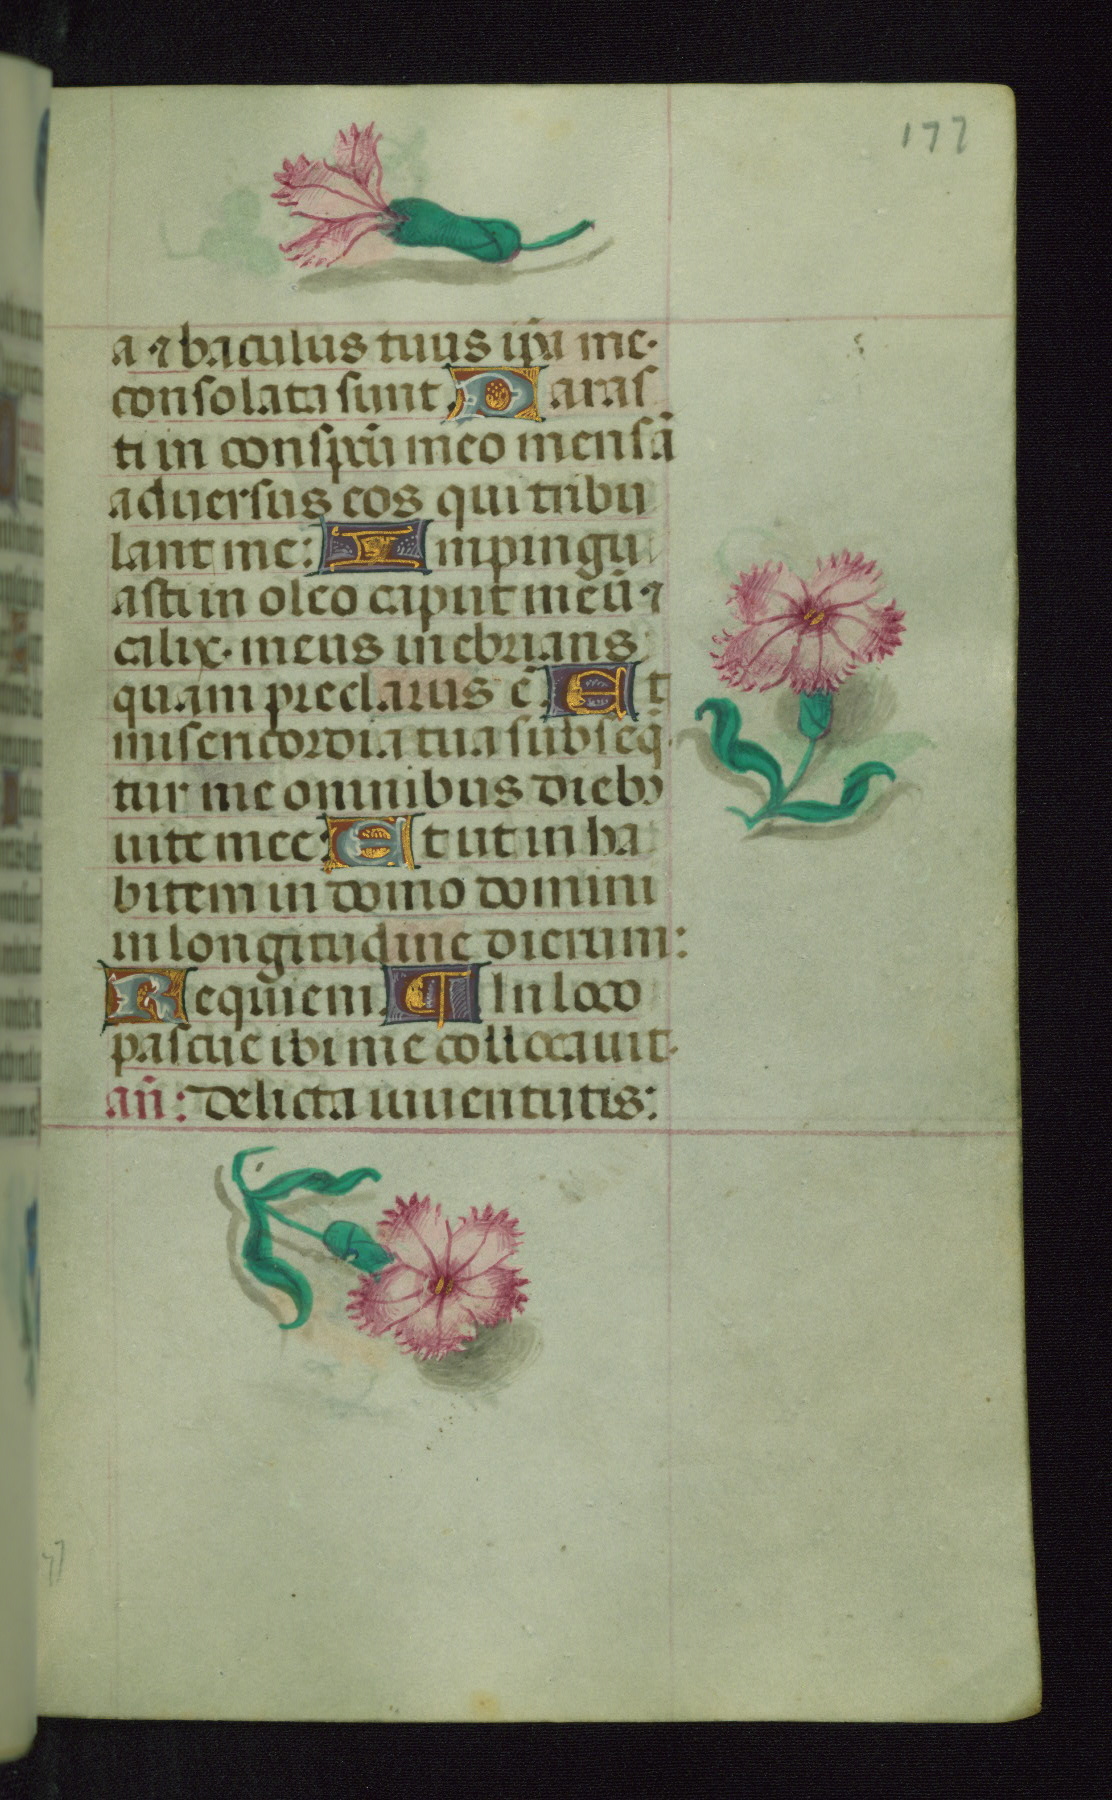 177
a ⁊ baculus tuus ip̄a me
consolata sunt. Paras
ti in conspc̄tu meo mensā
aduersus eos qui tribu
lant me: Inpingu
asti in oleo caput meū ⁊
calix meus inebrians
quam preclarus ē. Et
misericordia tua subseq̄
tur me omnibus diebꝫ
uite mee: Et ut inha
bitem in domo domini
in longitudine dierum:
Requiem. ¶ In loco
pascue ibi me collocauit.
an̄: Delicta iuuentutis: